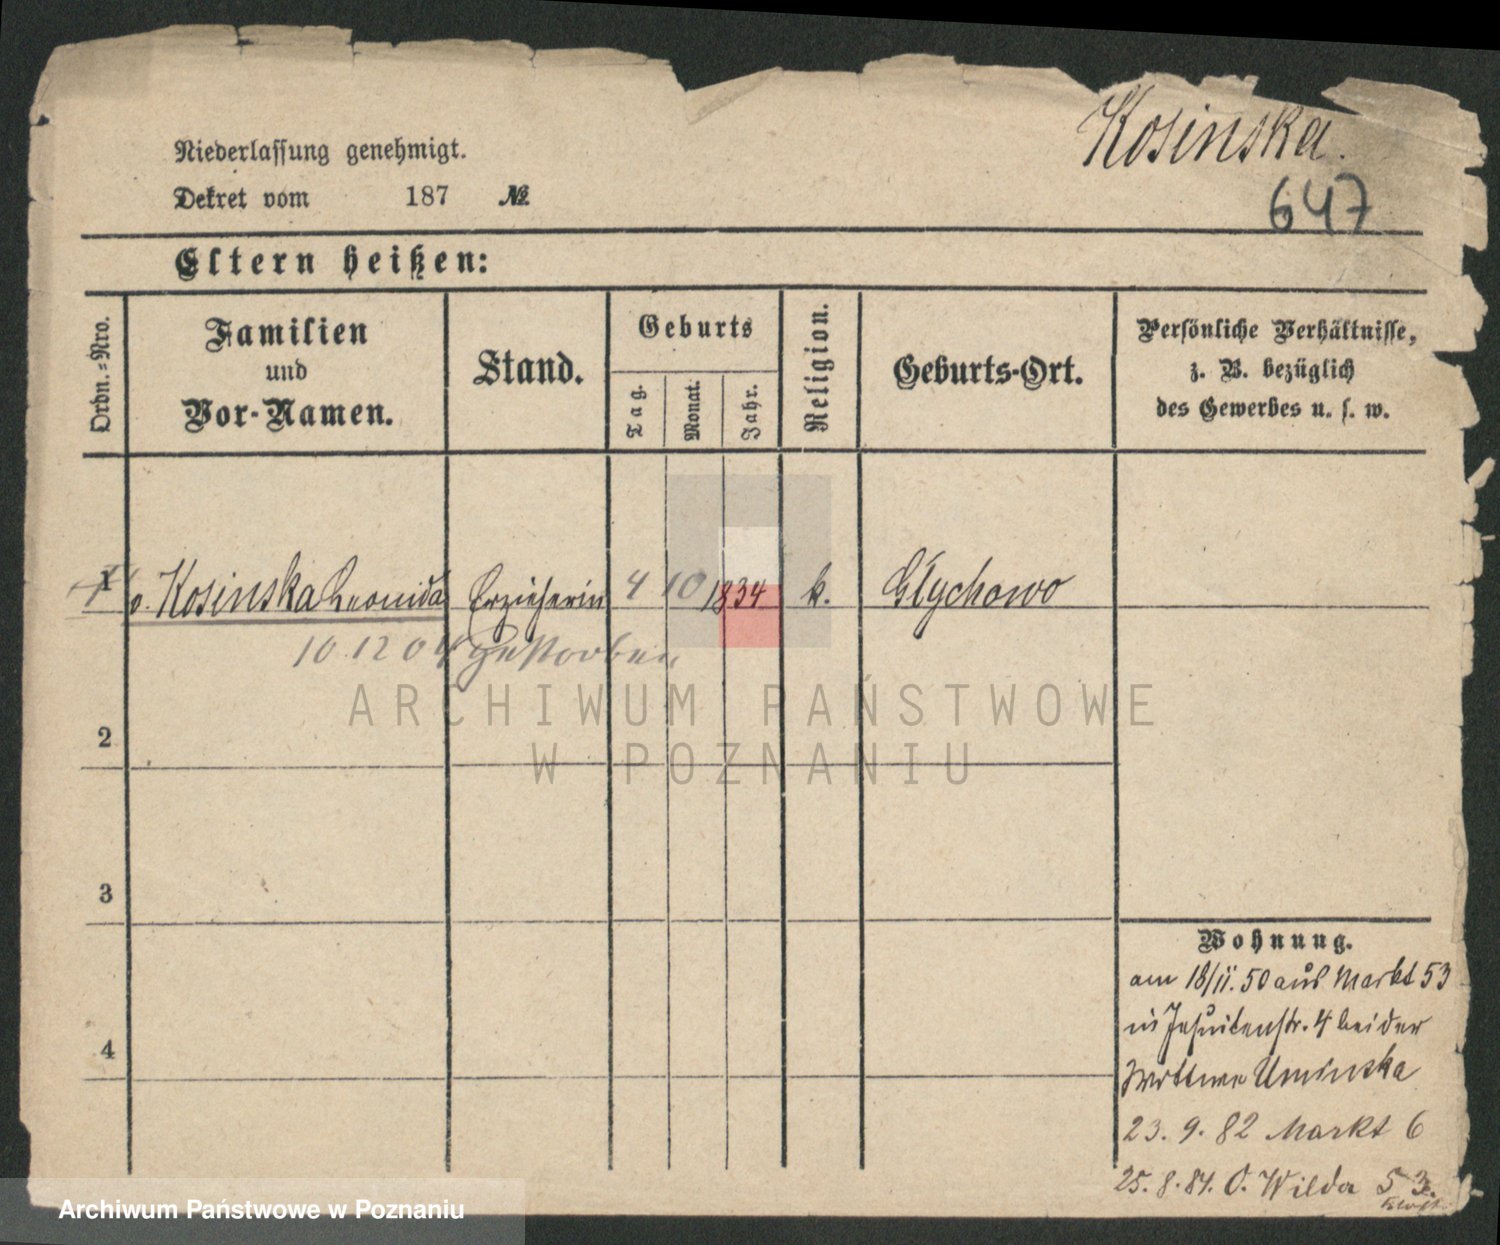 Kosinska.
647
Niederlassung genehmigt.
Dekret vom 187 №
Eltern heißen:
Ordn.-Nro.
Familien
und
Vor-Namen.
Stand.
Geburts
Tag.
Monat.
Jahr.
Religion.
Geburts-Ort.
Persönliche Verhältnisse,
z. B. bezüglich
des Gewerbes u. s. w.
1 v. Kosinska Leonida Erzieherin 4 10 1834 k. Głychowo
10 12 04 gestorben
ARCHIWUM PAŃSTWOWE
W POZNANIU
2
3
4
Wohnung.
am 18/11. 50 aus Markt 53
in Jesuitenstr. 4 bei der
Wittwe Uminska
23. 9. 82 Markt 6
25. 8. 84. O. Wilda 53.
Archiwum Państwowe w Poznaniu